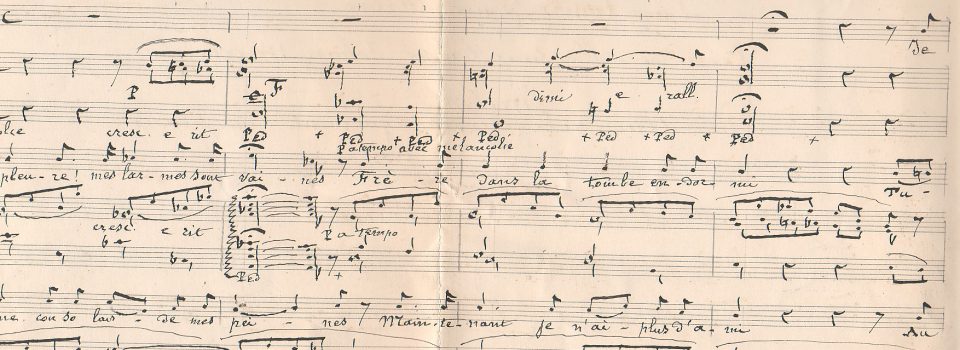 Je
P
F
dimi e rall.
cresc. e rit
Ped Ped Ped Ped Ped Ped Ped
P a tempo avec mélancolie
pleu - re! mes lar - mes sont vai - nes Frè - re dans la tombe en - dor mi Tu -
cresc. e rit P a tempo
Ped
con so lais - se mes pei - nes Main - te - nant je n'ai - plus d'a - mi Au